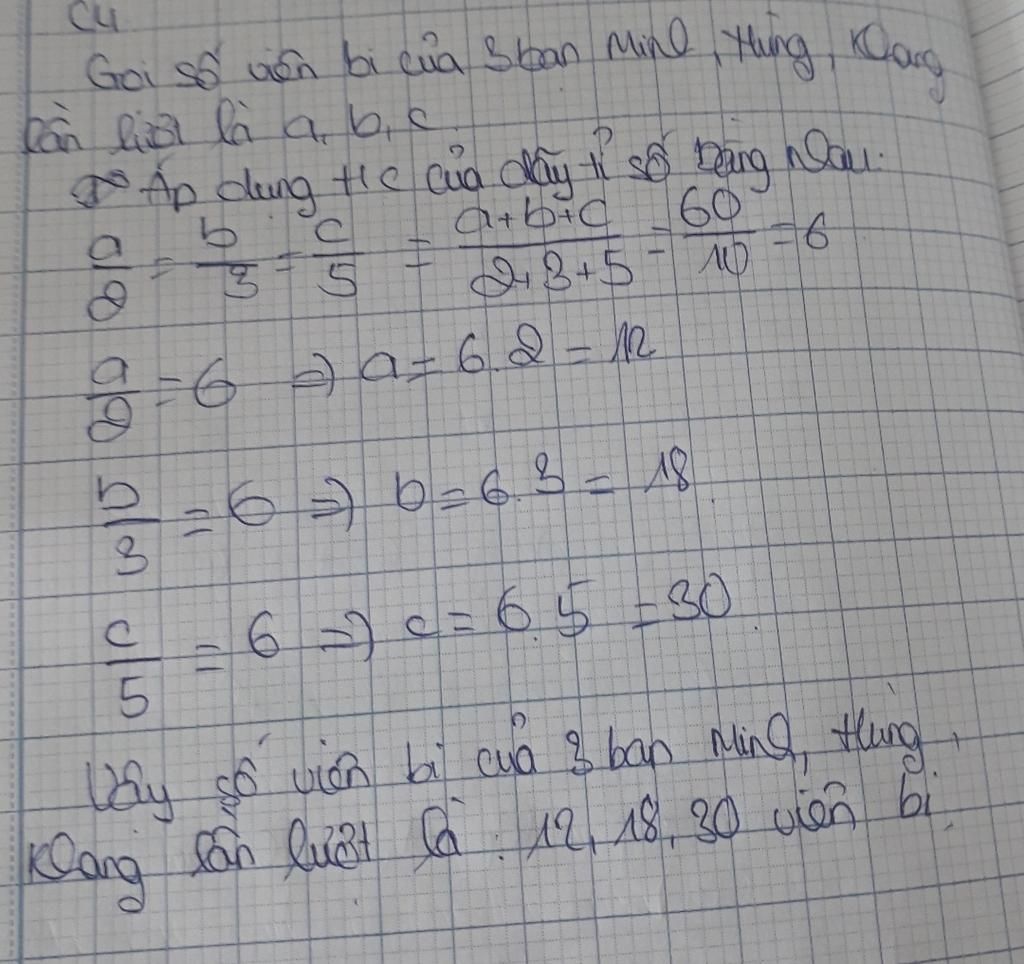 C4
Gọi số viên bi của 3 bạn Minh, Hùng, Khang
lần lượt là a, b, c
Áp dụng t/c của dãy tỉ số bằng nhau.
a/2 = b/3 = c/5 = a+b+c/2+3+5 = 60/10 = 6
a/2 = 6 => a = 6.2 = 12
b/3 = 6 => b = 6.3 = 18.
c/5 = 6 => c = 6.5 = 30.
Vậy số viên bi của 3 bạn Minh, Hùng,
Khang lần lượt là : 12, 18, 30 viên bi.